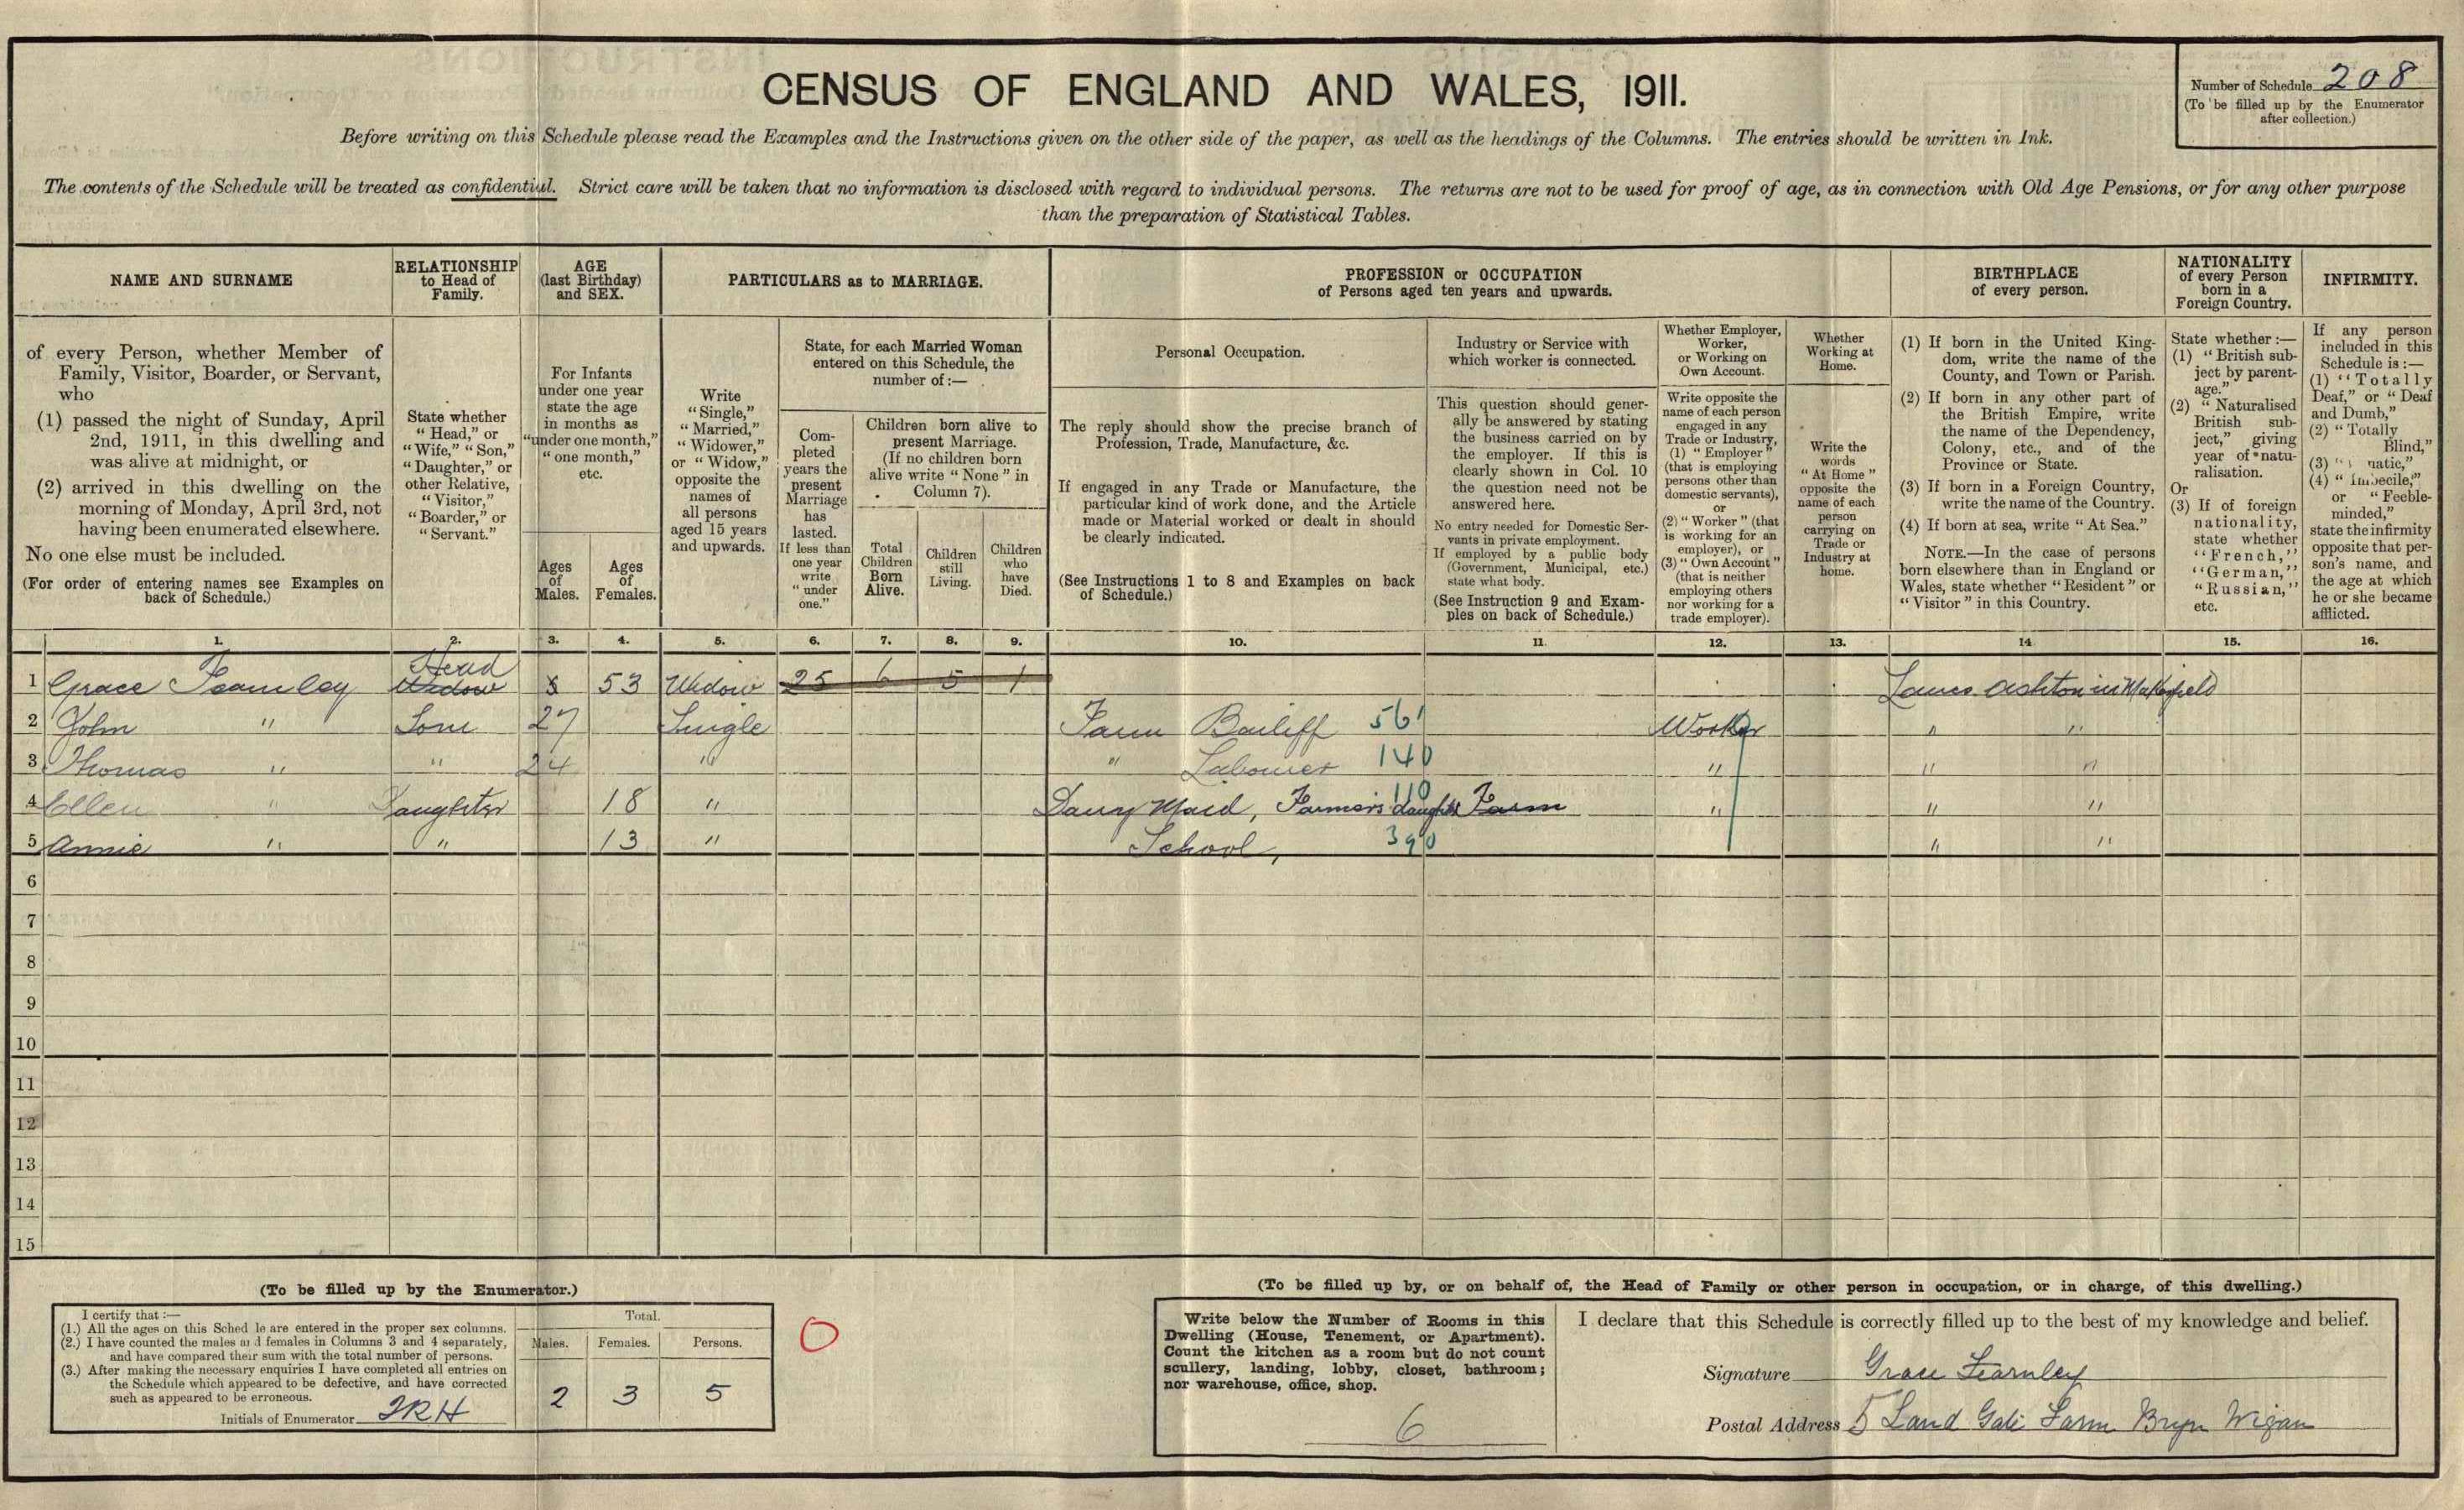 CENSUS OF ENGLAND AND WALES, 1911.
Number of Schedule 208
(To be filled up by the Enumerator
after collection.)
Before writing on this Schedule please read the Examples and the Instructions given on the other side of the paper, as well as the headings of the Columns. The entries should be written in Ink.
The contents of the Schedule will be treated as confidential. Strict care will be taken that no information is disclosed with regard to individual persons. The returns are not to be used for proof of age, as in connection with Old Age Pensions, or for any other purpose
than the preparation of Statistical Tables.
NAME AND SURNAME
of every Person, whether Member of
Family, Visitor, Boarder, or Servant,
who
(1) passed the night of Sunday, April
2nd, 1911, in this dwelling and
was alive at midnight, or
(2) arrived in this dwelling on the
morning of Monday, April 3rd, not
having been enumerated elsewhere.
No one else must be included.
(For order of entering names see Examples on
back of Schedule.)
RELATIONSHIP
to Head of
Family.
State whether
"Head," or
"Wife," "Son,"
"Daughter," or
other Relative,
"Visitor,"
"Boarder," or
"Servant."
AGE
(last Birthday)
and SEX.
For Infants
under one year
state the age
in months as
"under one month,"
"one month,"
etc.
Ages
of
Males.
Ages
of
Females.
PARTICULARS as to MARRIAGE.
Write
"Single,"
"Married,"
"Widower,"
or "Widow,"
opposite the
names of
all persons
aged 15 years
and upwards.
State, for each Married Woman
entered on this Schedule, the
number of:—
Com-
pleted
years the
present
Marriage
has
lasted.
If less than
one year
write
"under
one."
Children born alive to
present Marriage.
(If no children born
alive write "None" in
Column 7).
Total
Children
Born
Alive.
Children
still
Living.
Children
who
have
Died.
PROFESSION or OCCUPATION
of Persons aged ten years and upwards.
Personal Occupation.
The reply should show the precise branch of
Profession, Trade, Manufacture, &c.
If engaged in any Trade or Manufacture, the
particular kind of work done, and the Article
made or Material worked or dealt in should
be clearly indicated.
(See Instructions 1 to 8 and Examples on back
of Schedule.)
Industry or Service with
which worker is connected.
This question should gener-
ally be answered by stating
the business carried on by
the employer. If this is
clearly shown in Col. 10
the question need not be
answered here.
No entry needed for Domestic Ser-
vants in private employment.
If employed by a public body
(Government, Municipal, etc.)
state what body.
(See Instruction 9 and Exam-
ples on back of Schedule.)
Whether Employer,
Worker,
or Working on
Own Account.
Write opposite the
name of each person
engaged in any
Trade or Industry,
(1) "Employer"
(that is employing
persons other than
domestic servants),
or
(2) "Worker" (that
is working for an
employer), or
(3) "Own Account"
(that is neither
employing others
nor working for a
trade employer).
Whether
Working at
Home.
Write the
words
"At Home"
opposite the
name of each
person
carrying on
Trade or
Industry at
home.
BIRTHPLACE
of every person.
(1) If born in the United King-
dom, write the name of the
County, and Town or Parish.
(2) If born in any other part of
the British Empire, write
the name of the Dependency,
Colony, etc., and of the
Province or State.
(3) If born in a Foreign Country,
write the name of the Country.
(4) If born at sea, write "At Sea."
NOTE.—In the case of persons
born elsewhere than in England or
Wales, state whether "Resident" or
"Visitor" in this Country.
NATIONALITY
of every Person
born in a
Foreign Country.
State whether:—
(1) "British sub-
ject by parent-
age."
(2) "Naturalised
British sub-
ject," giving
year of natu-
ralisation.
Or
(3) If of foreign
nationality,
state whether
"French,"
"German,"
"Russian,"
etc.
INFIRMITY.
If any person
included in this
Schedule is:—
(1) "Totally
Deaf," or "Deaf
and Dumb,"
(2) "Totally
Blind,"
(3) natic,"
(4) "Imbecile,"
or "Feeble-
minded,"
state the infirmity
opposite that per-
son's name, and
the age at which
he or she became
afflicted.
1. 2. 3. 4. 5. 6. 7. 8. 9. 10. 11. 12. 13. 14. 15. 16.
Head
1 Grace Fearnley Widow 53 Widow 25 6 5 1 Lancs Ashton in Makerfield
2 John " Son 27 Single Farm Bailiff 561 Worker " "
3 Thomas " " 24 " " Labourer 140 " " "
4 Ellen " Daughter 18 " Dairy Maid, Farmer's daughter Farm 110 " " "
5 Annie " " 13 " School, 390 " "
6
7
8
9
10
11
12
13
14
15
(To be filled up by the Enumerator.)
I certify that:—
(1.) All the ages on this Sched le are entered in the proper sex columns.
(2.) I have counted the males a d females in Columns 3 and 4 separately,
and have compared their sum with the total number of persons.
(3.) After making the necessary enquiries I have completed all entries on
the Schedule which appeared to be defective, and have corrected
such as appeared to be erroneous.
Initials of Enumerator JRH
Total.
Males. Females. Persons.
2 3 5
0
(To be filled up by, or on behalf of, the Head of Family or other person in occupation, or in charge, of this dwelling.)
Write below the Number of Rooms in this
Dwelling (House, Tenement, or Apartment).
Count the kitchen as a room but do not count
scullery, landing, lobby, closet, bathroom;
nor warehouse, office, shop.
6
I declare that this Schedule is correctly filled up to the best of my knowledge and belief.
Signature Grace Fearnley
Postal Address 5 Land Gate Farm Bryn Wigan